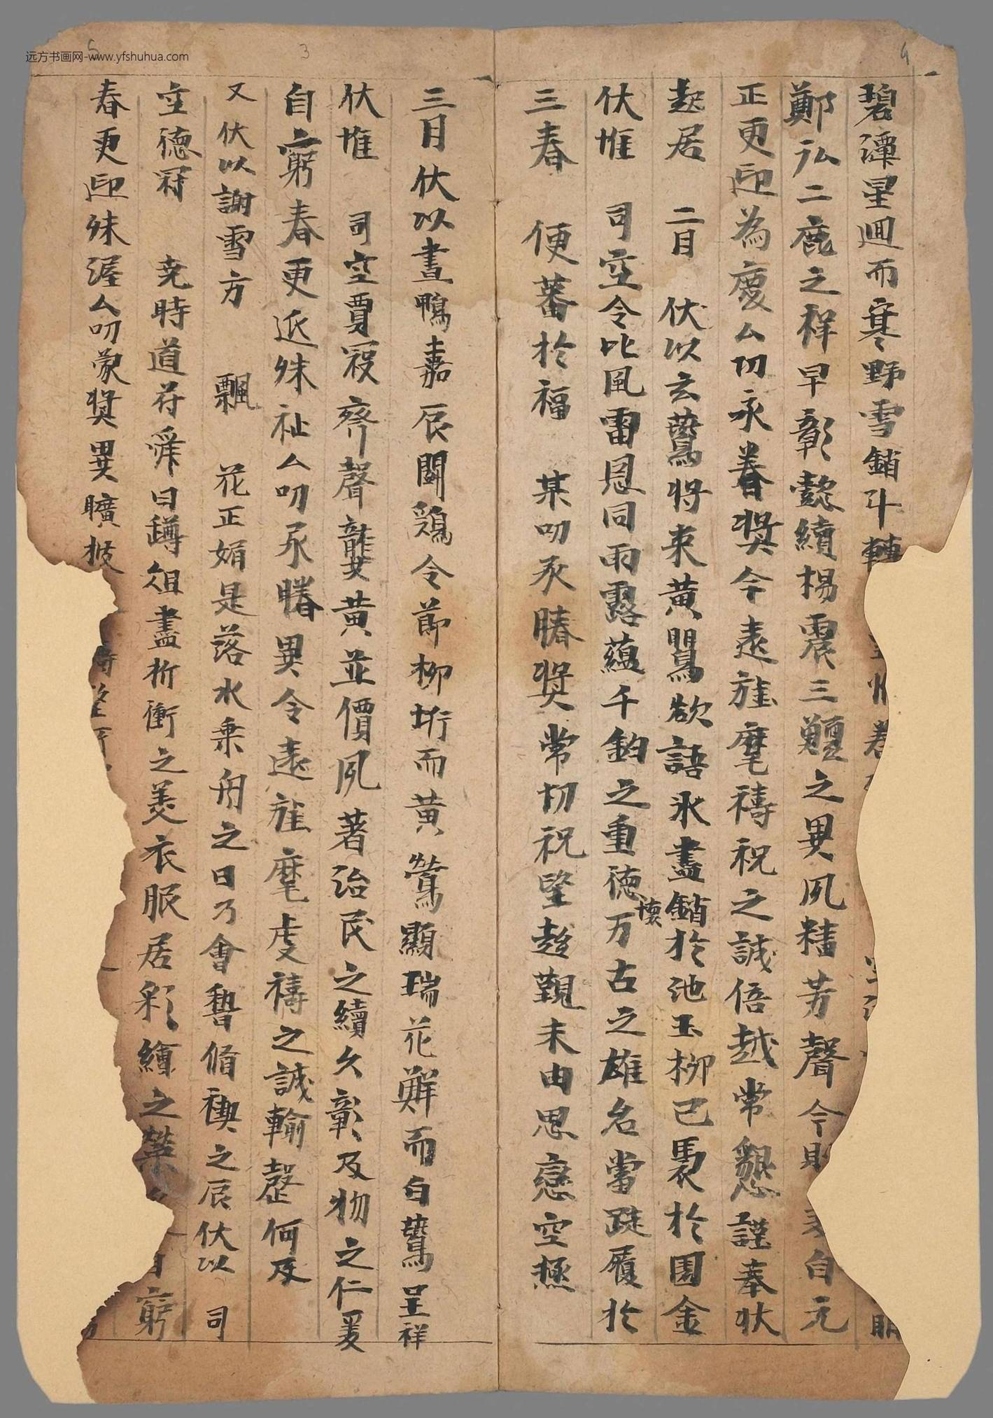 远方书画网-www.yfshuhua.com
碧潭星迴而寒野雪銷斗轉
鄭弘二鹿之祥早彰懿績楊震三鱣之異夙精芳聲今則自元
正更迎為慶厶叨永眷獎今遠旌麾禱祝之誠倍越常懇謹奉狀
起居 二月 伏以玄鸎將来黄鸎欲語氷盡銷於池玉柳已裂於園金
伏惟 司空令比風雷恩同雨露蘊千鈞之重德懷万古之雄名當踐履於
三春 便蕃於福 某叨承睠獎常切祝望趍覲未由思戀空極
三月伏以畫鴨嘉辰鬭鷄令節柳垳而黄鶯顯瑞花鮮而白鷺呈祥
伏惟 司空賈寇齊聲龔黄並價夙著治民之績久彰及物之仁爰
自窮春更近殊祉厶叨承睠異令遠旌麾虔禱之誠輸罄何及
又伏以謝雪方 飄 花正娟是落水乗舟之日乃會暫脩禊之辰伏以 司
空德冠 尭時道符舜日罇俎盡折衝之美衣服居彩繪之榮 自窮
春更迎殊渥厶叨蒙奨異曠披